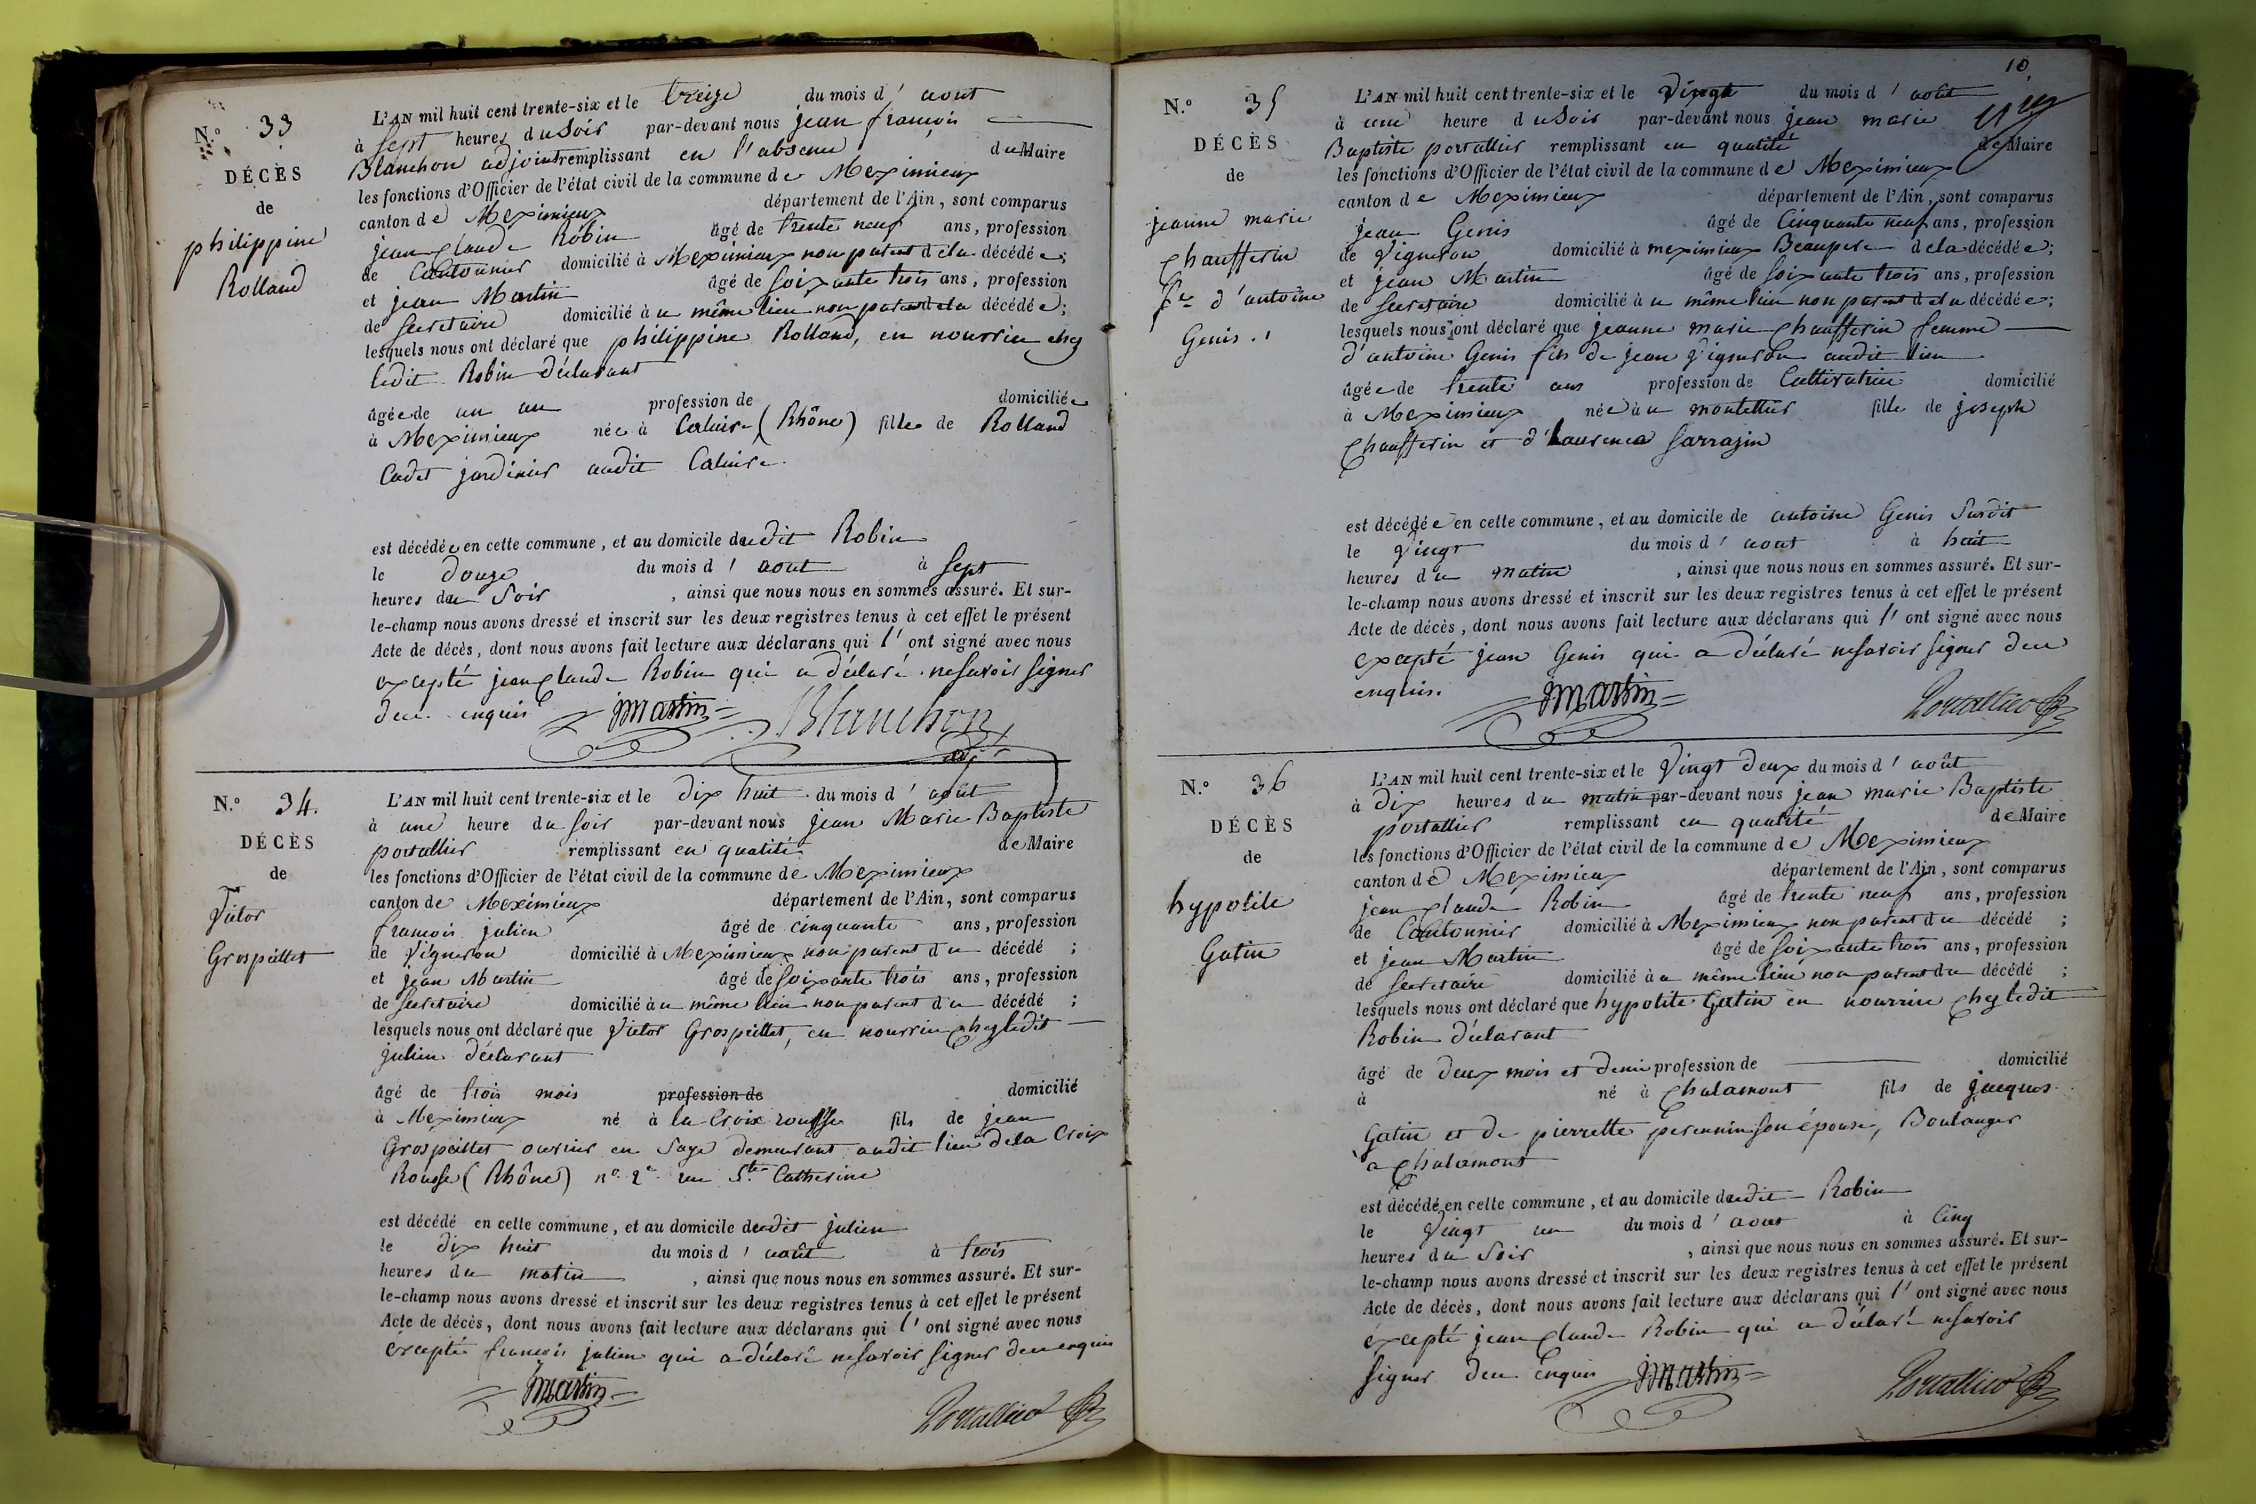 N.° 33
DÉCÈS
de
philippine
Rolland
L'AN mil huit cent trente-six et le treize du mois d' aout
à sept heures du soir par-devant nous jean françois
Blanchon adjoint remplissant en l'absence du Maire
les fonctions d'Officier de l'état civil de la commune de Meximieux
canton de Meximieux département de l'Ain, sont comparus
jean Claude Robin âgé de trente neuf ans, profession
de Cantonnier domicilié à Meximieux non parent de la décédée;
et jean Martin âgé de soixante trois ans, profession
de secretaire domicilié à u même lieu non parent de la décédée;
lesquels nous ont déclaré que philippine Rolland, en nourrice chez
ledit Robin déclarant
âgée de un an profession de domiciliée
à Meximieux née à Caluire (Rhône) fille de Rolland
Cadet jardinier audit Caluire.
est décédée en cette commune, et au domicile dudit Robin
le douze du mois d' aout à sept
heures du soir, ainsi que nous nous en sommes assuré. Et sur-
le-champ nous avons dressé et inscrit sur les deux registres tenus à cet effet le présent
Acte de décès, dont nous avons fait lecture aux déclarans qui l' ont signé avec nous
excepté jean Claude Robin qui a déclaré ne savoir signer
de ce enquis
jmartin
Blanchon
adj
N.° 34.
DÉCÈS
de
Victor
Grospeillet
L'AN mil huit cent trente-six et le dix huit du mois d' août
à une heure du soir par-devant nous Jean Marie Baptiste
portallier remplissant en qualité de Maire
les fonctions d'Officier de l'état civil de la commune de Meximieux
canton de Meximieux département de l'Ain, sont comparus
françois julien âgé de cinquante ans, profession
de Vigneron domicilié à Meximieux non parent du décédé;
et jean Martin âgé de soixante trois ans, profession
de secretaire domicilié à u même lieu non parent du décédé;
lesquels nous ont déclaré que Victor Grospeillet, en nourrice chez ledit
julien déclarant
âgé de trois mois profession de domicilié
à Meximieux né à la Croix rousse fils de jean
Grospeillet ouvrier en soye demeurant audit lieu de la Croix
Rousse (Rhône) n° 2 rue Ste Catherine
est décédé en cette commune, et au domicile dudit julien
le dix huit du mois d' août à trois
heures du matin, ainsi que nous nous en sommes assuré. Et sur-
le-champ nous avons dressé et inscrit sur les deux registres tenus à cet effet le présent
Acte de décès, dont nous avons fait lecture aux déclarans qui l' ont signé avec nous
excepté françois julien qui a déclaré ne savoir signer de ce enquis
jmartin
Portallier
10
N.° 35
DÉCÈS
de
jeanne marie
Chaufferin
fe d'antoine
Genis.
L'AN mil huit cent trente-six et le Vingt du mois d' août
à une heure du soir par-devant nous jean marie
Baptiste portallier remplissant en qualité de Maire
les fonctions d'Officier de l'état civil de la commune de Meximieux
canton de Meximieux département de l'Ain, sont comparus
jean Genis âgé de Cinquante neuf ans, profession
de Vigneron domicilié à meximieux Beaupere de la décédée;
et jean Martin âgé de soixante trois ans, profession
de secretaire domicilié à u même lieu non parent de la décédée;
lesquels nous ont déclaré que jeanne marie Chaufferin femme
d'antoine Genis fils de jean Vigneron audit lieu
âgée de trente ans profession de Cultivatrice domicilié
à Meximieux née à u montellier fille de joseph
Chaufferin et d'Laurence Sarrazin
est décédée en cette commune, et au domicile de antoine Genis susdit
le Vingt du mois d' aout à huit
heures du matin, ainsi que nous nous en sommes assuré. Et sur-
le-champ nous avons dressé et inscrit sur les deux registres tenus à cet effet le présent
Acte de décès, dont nous avons fait lecture aux déclarans qui l' ont signé avec nous
excepté jean Genis qui a déclaré ne savoir signer de ce
enquis.
jmartin
Portallier
N.° 36
DÉCÈS
de
hypolite
Gatin
L'AN mil huit cent trente-six et le Vingt deux du mois d' août
à dix heures du matin par-devant nous jean marie Baptiste
portallier remplissant en qualité de Maire
les fonctions d'Officier de l'état civil de la commune de Meximieux
canton de Meximieux département de l'Ain, sont comparus
jean Claude Robin âgé de trente neuf ans, profession
de Cantonnier domicilié à Meximieux non parent du décédé;
et jean Martin âgé de soixante trois ans, profession
de secretaire domicilié à u même lieu non parent du décédé;
lesquels nous ont déclaré que hypolite Gatin en nourrice chez ledit
Robin déclarant
âgé de deux mois et demi profession de domicilié
à né à Chalamont fils de jacques
Gatin et de pierrette perennin son épouse, Boulanger
à Chalamont
est décédé en cette commune, et au domicile dudit Robin
le Vingt un du mois d' aout à Cinq
heures du soir, ainsi que nous nous en sommes assuré. Et sur-
le-champ nous avons dressé et inscrit sur les deux registres tenus à cet effet le présent
Acte de décès, dont nous avons fait lecture aux déclarans qui l' ont signé avec nous
excepté jean Claude Robin qui a déclaré ne savoir
signer de ce enquis
jmartin
Portallier